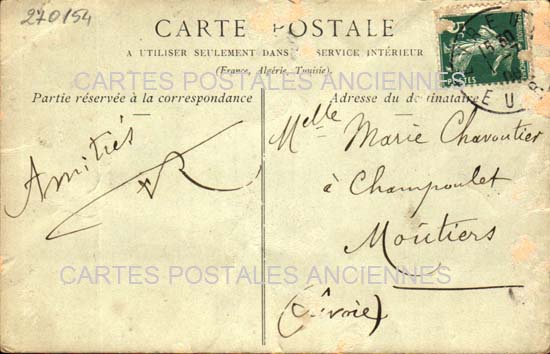 270154
CARTE POSTALE
A UTILISER SEULEMENT DANS SERVICE INTÉRIEUR
(France, Algérie, Tunisie).
CARTES POSTALES ANCIENNES
Partie réservée à la correspondance
Adresse du destinataire
Amitiés
Melle Marie Chavoutier
à Champoulet
Moûtiers
CARTES POSTALES ANCIENNES